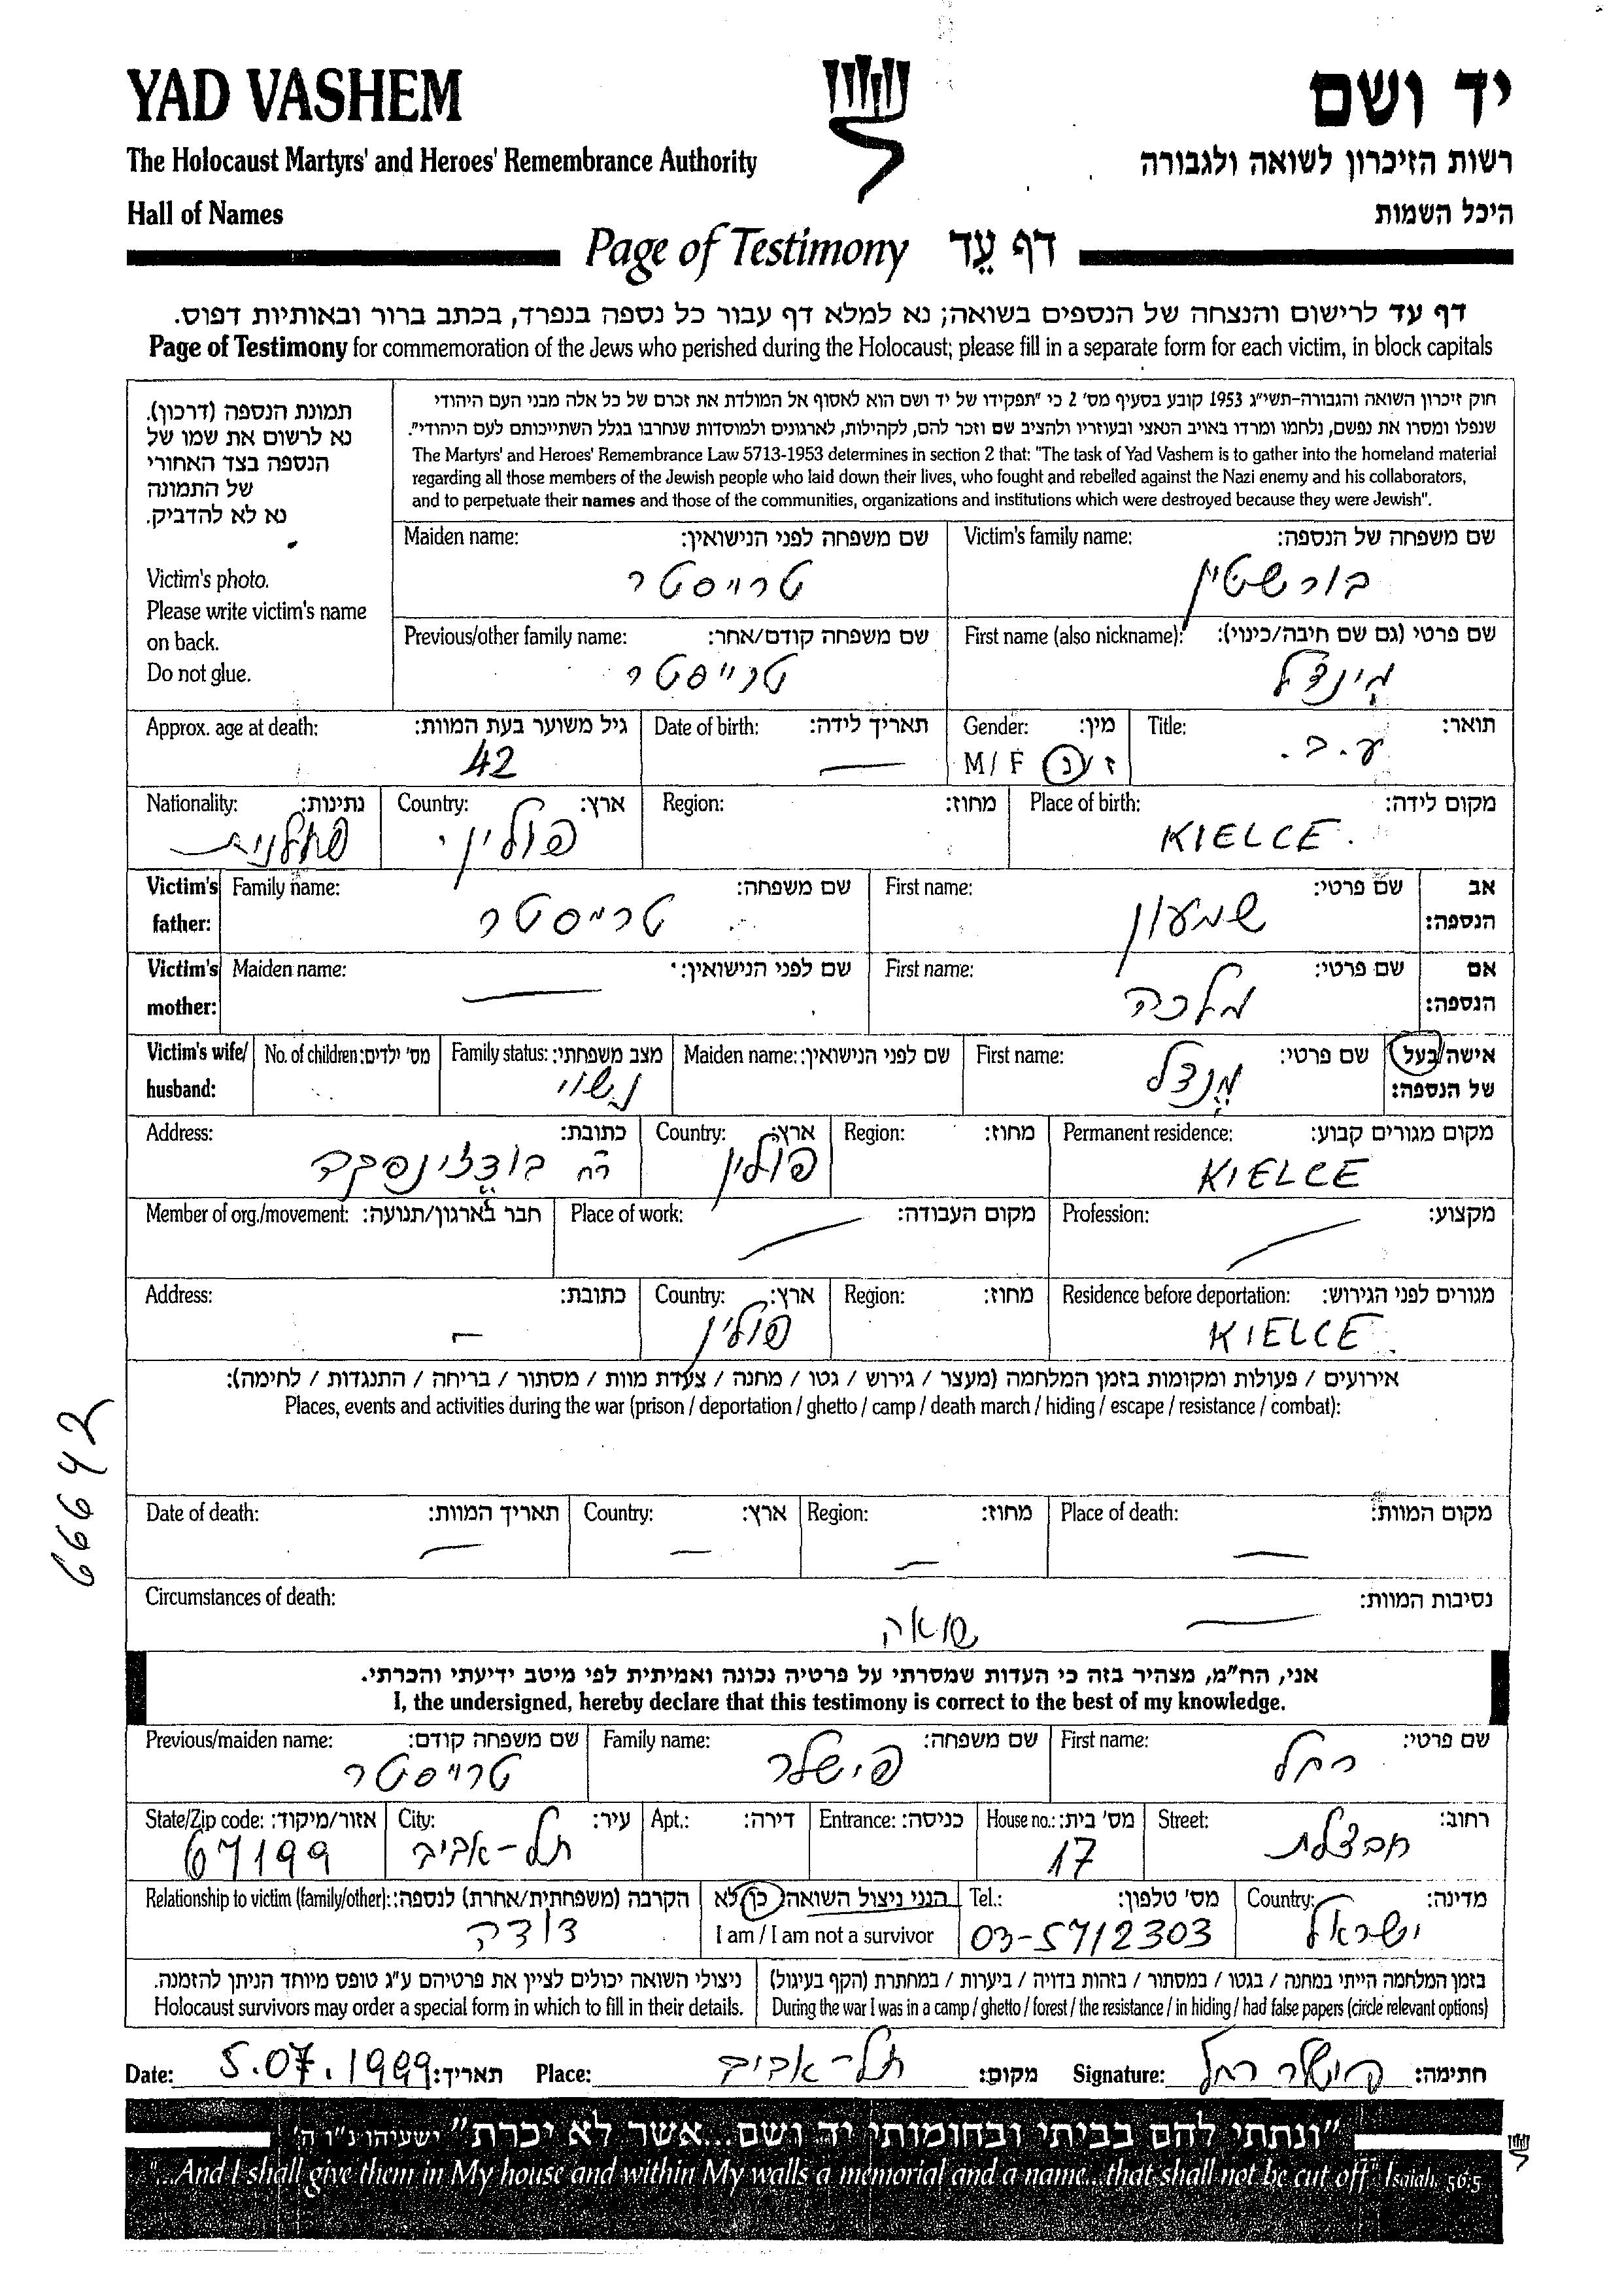 YAD VASHEM
יד ושם
The Holocaust Martyrs' and Heroes' Remembrance Authority
רשות הזיכרון לשואה ולגבורה
Hall of Names
היכל השמות
Page of Testimony דף עֵד
דף עד לרישום והנצחה של הנספים בשואה; נא למלא דף עבור כל נספה בנפרד, בכתב ברור ובאותיות דפוס.
Page of Testimony for commemoration of the Jews who perished during the Holocaust; please fill in a separate form for each victim, in block capitals
תמונת הנספה (דרכון).
נא לרשום את שמו של
הנספה בצד האחורי
של התמונה
נא לא להדביק.
Victim's photo.
Please write victim's name
on back.
Do not glue.
חוק זיכרון השואה והגבורה-תשי"ג 1953 קובע בסעיף מס' 2 כי "תפקידו של יד ושם הוא לאסוף אל המולדת את זכרם של כל אלה מבני העם היהודי
שנפלו ומסרו את נפשם, נלחמו ומרדו באויב הנאצי ובעוזריו ולהציב שם וזכר להם, לקהילות, לארגונים ולמוסדות שנחרבו בגלל השתייכותם לעם היהודי".
The Martyrs' and Heroes' Remembrance Law 5713-1953 determines in section 2 that: "The task of Yad Vashem is to gather into the homeland material
regarding all those members of the Jewish people who laid down their lives, who fought and rebelled against the Nazi enemy and his collaborators,
and to perpetuate their names and those of the communities, organizations and institutions which were destroyed because they were Jewish".
Victim's family name: שם משפחה של הנספה:
בורשטין
Maiden name: שם משפחה לפני הנישואין:
טרייסטר
First name (also nickname): שם פרטי (גם שם חיבה/כינוי):
מינדל
Previous/other family name: שם משפחה קודם/אחר:
טרייסטר
Title: תואר:
ע.ב.
Gender: מין:
M / F ז / נ
Date of birth: תאריך לידה:
—
Approx. age at death: גיל משוער בעת המוות:
42
Place of birth: מקום לידה:
KIELCE
Region: מחוז:
Country: ארץ:
פולין
Nationality: נתינות:
פולנית
Victim's father: אב הנספה:
First name: שם פרטי:
שמעון
Family name: שם משפחה:
טרייסטר
Victim's mother: אם הנספה:
First name: שם פרטי:
מלכה
Maiden name: שם לפני הנישואין:
—
Victim's wife/husband: אישה/בעל של הנספה:
First name: שם פרטי:
מנדל
Maiden name: שם לפני הנישואין:
Family status: מצב משפחתי:
נשוי
No. of children: מס' ילדים:
Permanent residence: מקום מגורים קבוע:
KIELCE
Region: מחוז:
Country: ארץ:
פולין
Address: כתובת:
רח
Profession: מקצוע:
—
Place of work: מקום העבודה:
—
Member of org./movement: חבר בארגון/תנועה:
Residence before deportation: מגורים לפני הגירוש:
KIELCE
Region: מחוז:
Country: ארץ:
פולין
Address: כתובת:
—
אירועים / פעולות ומקומות בזמן המלחמה (מעצר / גירוש / גטו / מחנה / צעדת מוות / מסתור / בריחה / התנגדות / לחימה):
Places, events and activities during the war (prison / deportation / ghetto / camp / death march / hiding / escape / resistance / combat):
66642
Place of death: מקום המוות:
—
Region: מחוז:
—
Country: ארץ:
—
Date of death: תאריך המוות:
—
Circumstances of death: נסיבות המוות:
— שואה
אני, הח"מ, מצהיר בזה כי העדות שמסרתי על פרטיה נכונה ואמיתית לפי מיטב ידיעתי והכרתי.
I, the undersigned, hereby declare that this testimony is correct to the best of my knowledge.
First name: שם פרטי:
רחל
Family name: שם משפחה:
פישלר
Previous/maiden name: שם משפחה קודם:
טרייסטר
Street: רחוב:
חבצלת
House no.: מס' בית:
17
Entrance: כניסה:
Apt.: דירה:
City: עיר:
תל-אביב
State/Zip code: אזור/מיקוד:
67199
Country: מדינה:
ישראל
Tel.: מס' טלפון:
03-5712303
הנני ניצול השואה: כן/לא
I am / I am not a survivor
Relationship to victim (family/other): הקרבה (משפחתית/אחרת) לנספה:
דודה
בזמן המלחמה הייתי במחנה / בגטו / במסתור / בזהות בדויה / ביערות / במחתרת (הקף בעיגול)
During the war I was in a camp / ghetto / forest / the resistance / in hiding / had false papers (circle relevant options)
ניצולי השואה יכולים לציין את פרטיהם ע"ג טופס מיוחד הניתן להזמנה.
Holocaust survivors may order a special form in which to fill in their details.
Date: 5.07.1999 תאריך: Place: תל-אביב מקום: Signature: פישלר רחל חתימה:
"ונתתי להם בביתי ובחומותי יד ושם...אשר לא יכרת" ישעיהו נ"ו ה'
"...And I shall give them in My house and within My walls a memorial and a name...that shall not be cut off" Isaiah. 56:5